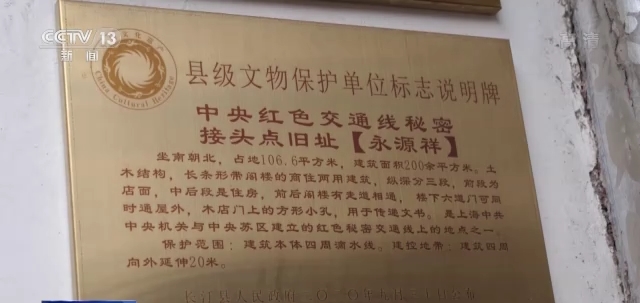 CCTV 13
新闻
高清
China Cultural Heritage
县级文物保护单位标志说明牌
中央红色交通线秘密
接头点旧址【永源祥】
坐南朝北，占地106.6平方米，建筑面积200余平方米。土
木结构，长条形带阁楼的商住两用建筑，纵深分三段，前段为
店面，中后段是住房，前后阁楼有走道相通，楼下六道门可同
时通屋外，木店门上的方形小孔，用于传递文书。是上海中共
中央机关与中央苏区建立的红色秘密交通线上的地点之一。
保护范围：建筑本体四周滴水线。建控地带：建筑四周
向外延伸20米。
长汀县人民政府